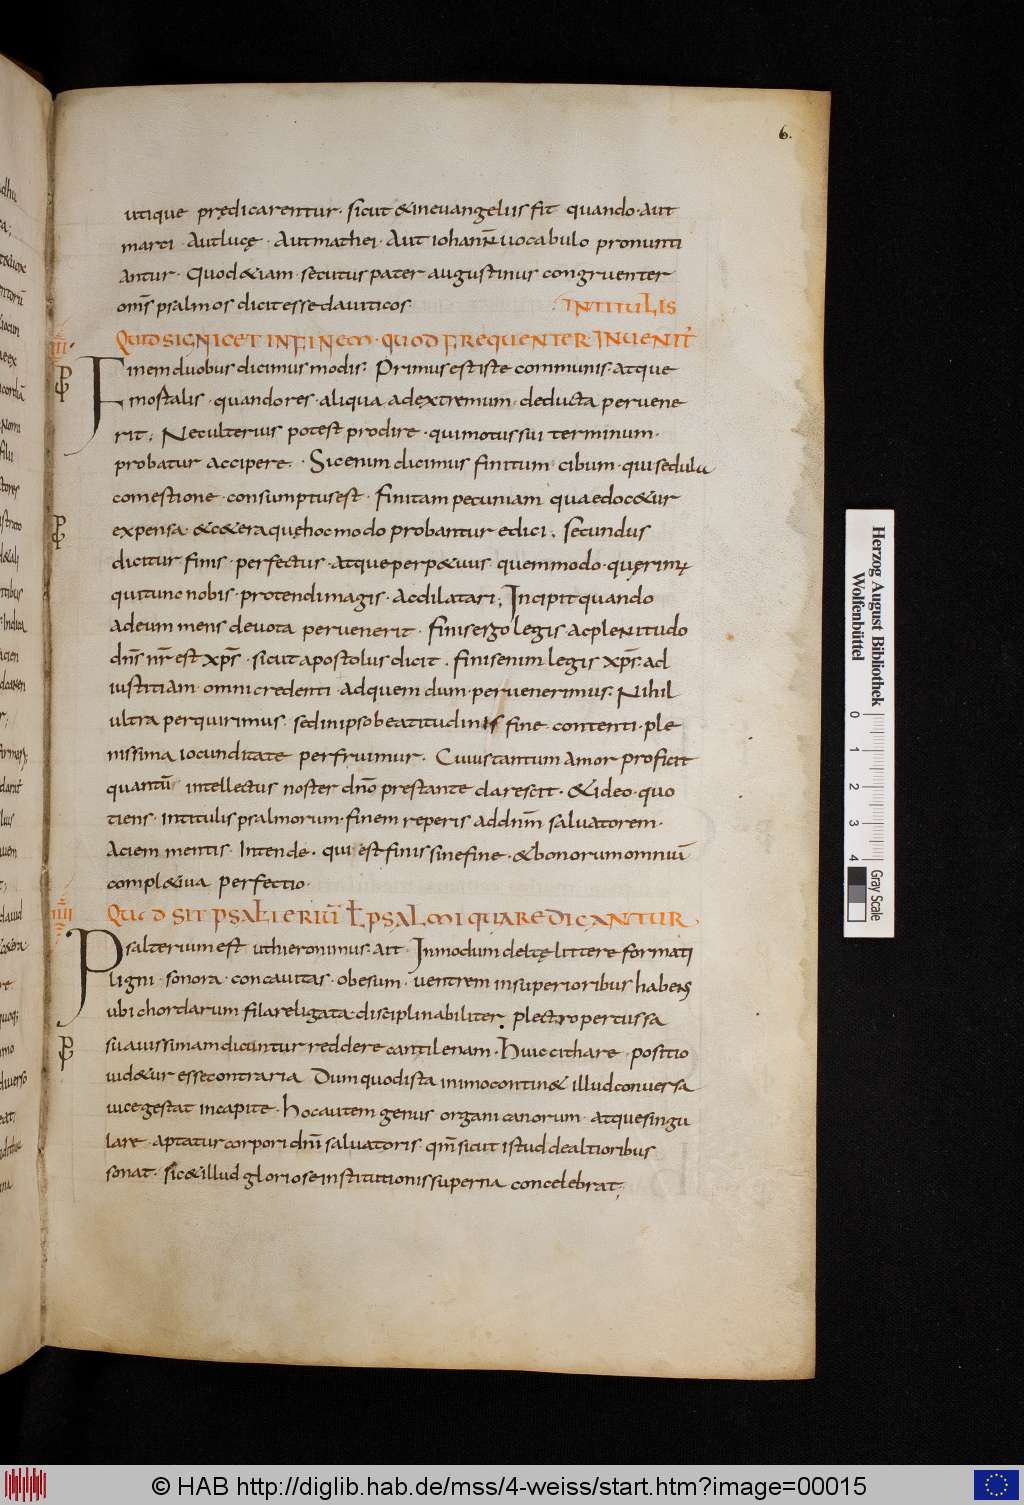 6.
utique prędicarentur· sicut &in euangeliis fit quando· aut
marci· Aut lucę· Aut mathei· Aut iohannis uocabulo pronunti
antur· Quod &iam· secutus pater augustinus congruenter
om̄s psalmos dicit esse dauiticos·
IN TITULIS
III·
QUID SIGNICET IN FINEM· QUOD FREQUENTER INUENIT᷑
Finem duobus dicimus modis· Primus est iste communis· atque
mostalis· quando res· aliqua ad extremum· deducta peruene
rit; Nec ulterius potest prodire· qui motus sui terminum·
probatur accipere· Sic enim dicimus finitum cibum· qui sedula
comestione· consumptus est· finitam pecuniam quae doc&ur
expensa· &c&era quę hoc modo probantur edici; Secundus
dicitur finis· perfectus· atque perp&uus· quemmodo· quęrimꝰ
qui tunc nobis· protendi magis· Ac dilatari; Incipit quando
ad eum mens deuota peruenerit· finis ergo legis ac plenitudo
dn̄s nr̄ est xp̄s· sicut apostolus dicit· finis enim legis xp̄s· ad
iustitiam· omni credenti· ad quem dum· peruenerimus· Nihil
ultra perquirimus· sed in ipso beatitudinis fine· contenti· ple
nissima iocunditate perfruimur· Cuius tantum amor proficit
quantū intellectus noster dn̄o prestante clarescit· &ideo· quo
tiens· in titulis psalmorum· finem reperis ad dn̄m saluatorem·
Aciem mentis· Intende· qui est finis sine fine· &bonorum omniū
compl&iua perfectio·
IIII
QUOD SIT PSALTERIŪ Ł PSALMI QUARE DICANTUR
Psalterium est ut hieronimus· ait· In modum deltę littere formati
ligni· sonora· concauitas· obesum· uentrem in superioribus habens
ubi chordarum fila religata disciplinabiliter; plectro percussa
suauissimam dicuntur reddere cantilenam· huic cithare· positio
uid&ur esse contraria Dum quod ista in imo contin& illud conuersa
uice gestat in capite· hoc autem genus organi canorum· atque singu
lare· aptatur corpori dn̄i saluatoris· qm̄ sicut istud de altioribus
sonat· sic &illud gloriose institutionis superna concelebrat;
Herzog August Bibliothek
Wolfenbüttel
0 1 2 3 4
Gray Scale
© HAB http://diglib.hab.de/mss/4-weiss/start.htm?image=00015